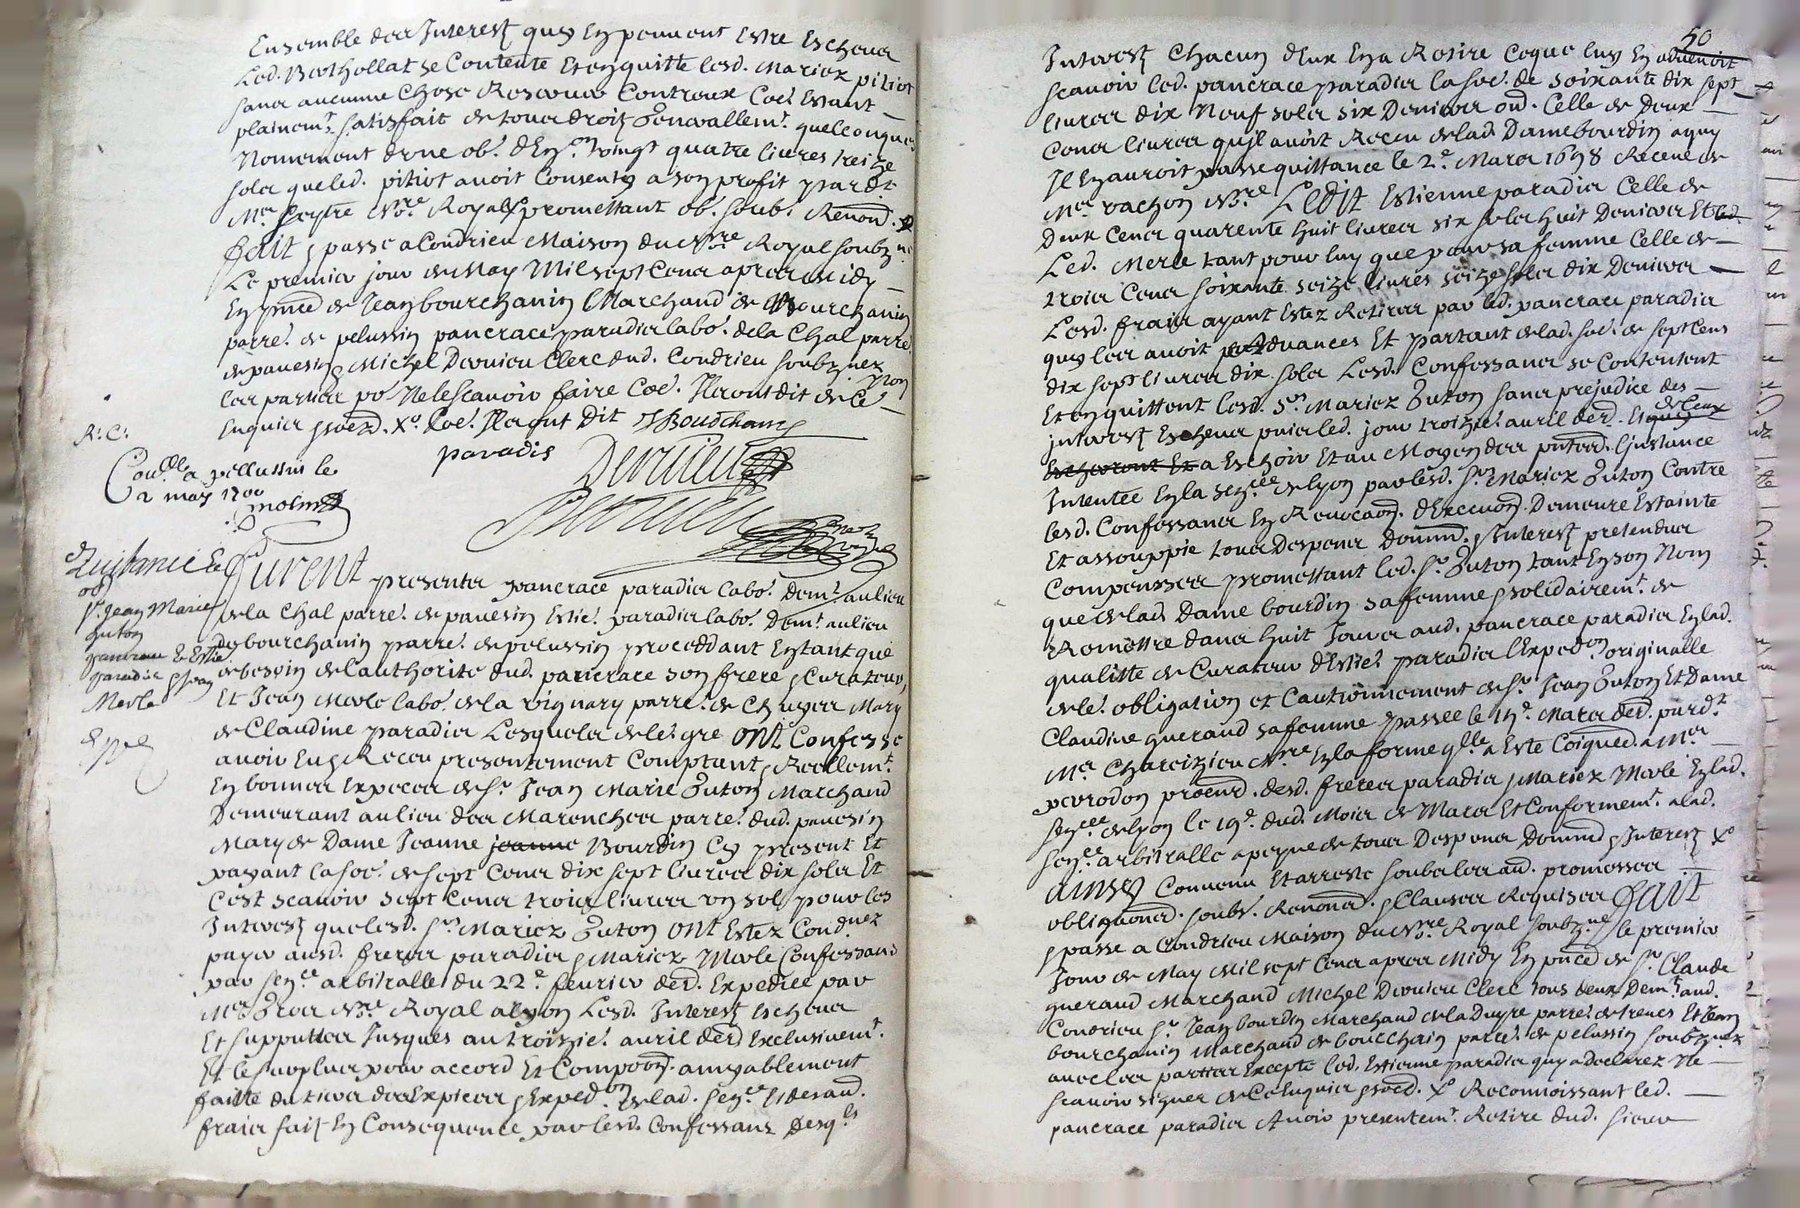 Ensemble des Interestz quy En peuvent Estre Escheus
Led. Berthollat se Contente Et en quitte lesd. Mariez pitiot
sans aucunne Chose Reserver Contreux Coe. Estant
plainemt. satisfait de tous droitz Generallemt. quelconques
Nomement d'une ob. d'En.on vingt quatre livres treize
solz que led. pitiot avoit Consenty a son profit par dt.
Me. Nore. Royal promettant ob. soub. Renond. &
fait & passe a Condrieu Maison du Nore. Royal soubzne.
Le premier jour de May Mil sept Cens apres midy
En pnce. de Jean bourchanin Marchand de Bourchanin
parre. de pelussin pancrace paradis labo. de la Chal parre.
de pavesin & Michel Dervieu Clerc dud. Condrieu soubznez
les parties po. Ne le scavoir faire Coe. Ils ont dit de Ce
Enquis & soed. Xo. Coe. Ils ont Dit JBourchanin
R. C.
paradis
Dervieu
Conlle. a pellussin le
2 may 1700
Dervieu
Quittance
Sr. Jean Marie
Zuton
pancrace & Estie.
paradis & Jean
Merle
Expe.
Furent presents pancrace paradis labo. Demt. au lieu
de la Chal parre. de pavesin Estie. paradis labo. Demt. au lieu
de bourchanin parre. de pelussin procedant Entant que
de besoin de l'authorite dud. pancrace son frere & Curateur,
Et Jean Merle labo. de la vignary parre. de Chuyer Mary
de Claudine paradis Lesquels de le. gre ONt Confesse
avoir Eu & Receu presentement Comptant & Reellemt.
En bonnes Especes de Sr. Jean Marie Zuton Marchand
Demeurant au lieu des Marenches parre. dud. pavesin
Mary de Dame Jeanne jeanne Bourdin Cy present Et
payant la soe. de sept Cens dix sept livres dix solz Et
C'est scavoir sept Cens trois livres un sol pour les
Interestz que lesd. Srs. Mariez Zuton ONt Estez Condnez
payer ausd. freres paradis & Mariez Merle Confessans
par Sence. arbitralle du 22e. fevrier der. Expediee par
Me. Nore. Royal a lyon Lesd. Interestz Escheus
Et supputtez Jusques au troizie. avril der. Exclusivemt.
Et le surplus pour accord Et Compoon. amyablement
faitte du tiers des Espices & Expedon. de lad. Sence.
fraies fait En Consequence par lesd. Confessans Desqls.
50
Interestz Chacun d'Eux En a Retire Ce que luy En advenoit
scavoir led. pancrace paradis la soe. de soixante dix sept
livres dix Neuf solz six Deniers oud. Celle de Deux
Cens livres qu'il avoit Receu de lad. Dame bourdin a quy
Il En auroit passe quittance le 2e. Mars 1698 Receue de
Me. vachon Nore. Ledit Estienne paradis Celle de
Deux Cens quarente huit livres six solz huit Deniers Et
Led. Merle tant pour luy que pour sa femme Celle de
trois Cens soixante seize livres seize solz dix Deniers
Lesd. fraies ayant Estez Retirez par led. pancrace paradis
quy les avoit advancés Et partant de lad. soe. de sept Cens
dix sept livres dix solz Lesd. Confessans se Contentent
Et en quittent lesd. Srs. Mariez Zuton sans prejudice des
interestz Escheus puis led. jour troizie. avril der. Et de Ceux
a Eschoir Et au Moyen des pntes. l'instance
Intentee En la Sence. de lyon par lesd. Srs. Mariez Zuton Contre
lesd. Confessans En Revocaon. d'Execuon. Demeure Estainte
Et assouppie tous Despens Domm. & Interestz pretendus
Compensses promettant led. Sr. Zuton tant En son Nom
que de lad. Dame bourdin sa femme & solidairemt. de
Remettre dans huit Jours aud. pancrace paradis En lad.
qualitte de Curateur d'Estie. paradis l'Expedon. originalle
de le. obligation et Cautionnement de Sr. Jean Zuton Et Dame
Claudine gueraud sa femme passee le 19e. Mars der. par dt.
Me. Charezieu Nore. En la forme qlle. a Este Coiqued. a Me.
perrodon procur. desd. freres paradis & Mariez Merle En lad.
Sence. de lyon le 19e. dud. Mois de Mars Et Conformemt. a lad.
Sence. arbitralle a peyne de tous Despens Domm. & Interestz Xo.
AINsy Convenu Et arreste soubz les aud. promesses
obligaons. soubs. Renons. & Clauses Requises FAIt
& passe a Condrieu Maison du Nore. Royal soubzne. le premier
Jour de May Mil sept Cens apres Midy En pnce. de Sr. Claude
gueraud Marchand Michel Dervieu Clerc tous deux Demt. aud.
Condrieu Sr. Jean bourdin Marchand de la Duyre parre. de treves Et Jean
bourchanin Marchand de bourchanin parre. de pelussin soubznez
avec les parties Excepte led. Estienne paradis quy a Declarez Ne
scavoir signer de Ce Enquis & soed. Xo. Reconnoissant led.
pancrace paradis Avoir presentemt. Retire dud. sieur